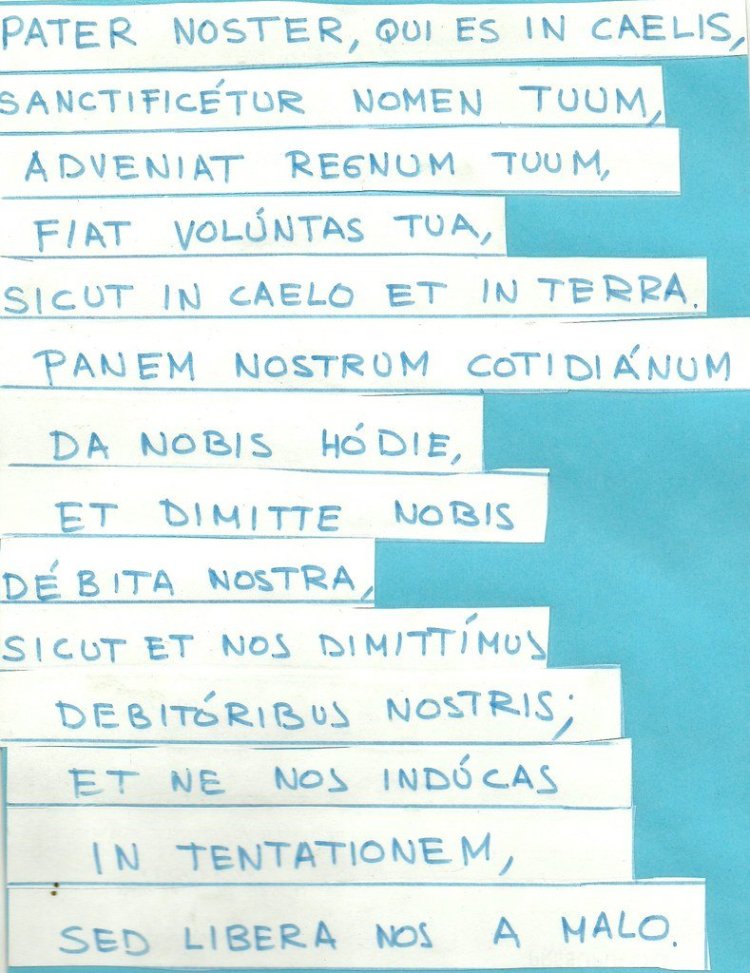 PATER NOSTER, QUI ES IN CAELIS,
SANCTIFICÉTUR NOMEN TUUM,
ADVENIAT REGNUM TUUM,
FIAT VOLÚNTAS TUA,
SICUT IN CAELO ET IN TERRA.
PANEM NOSTRUM COTIDIÁNUM
DA NOBIS HÓDIE,
ET DIMITTE NOBIS
DÉBITA NOSTRA,
SICUT ET NOS DIMITTÍMUS
DEBITÓRIBUS NOSTRIS;
ET NE NOS INDÚCAS
IN TENTATIONEM,
SED LIBERA NOS A MALO.